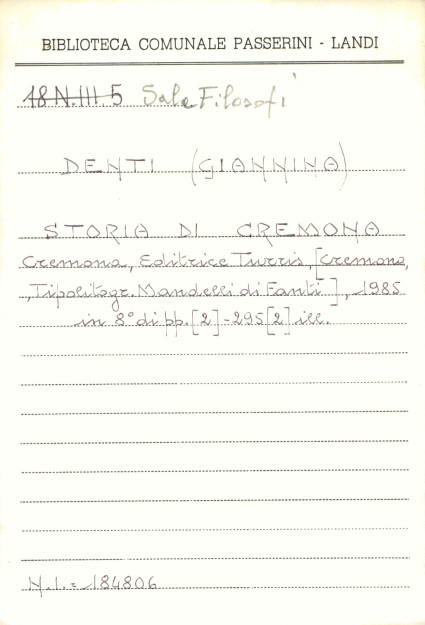 BIBLIOTECA COMUNALE PASSERINI - LANDI
18 N.III.5 Sala Filosofi
DENTI (GIANNINA)
STORIA DI CREMONA
Cremona, Editrice Turris, [Cremona,
Tipolitogr. Mandelli di Fanti], 1985
in 8° di pp. [2]-295[2] ill.
N.I.= 184806